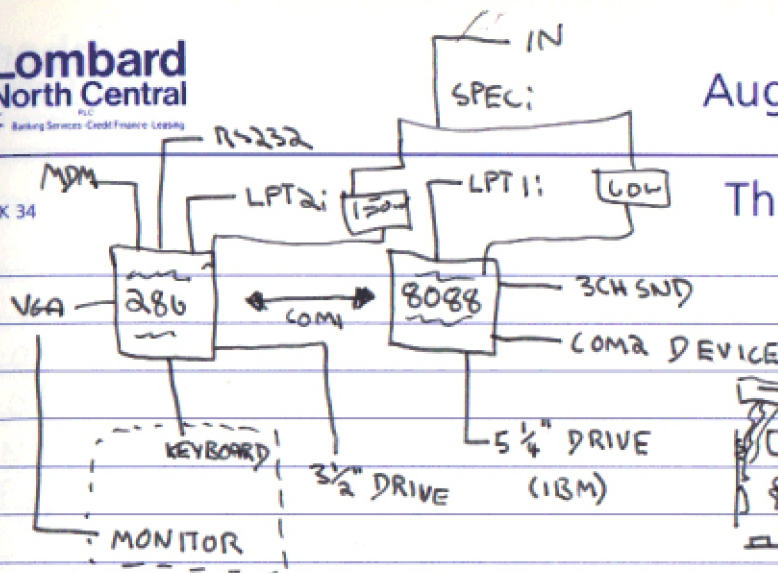 IN
Lombard
North Central
PLC
Banking Services · Credit Finance · Leasing
Aug
SPECi
RS232
MDM
LPT2i
LPT1i
60W
K 34
Th
VGA
286
COM1
8088
3CH SND
COM2 DEVICE
KEYBOARD
3½" DRIVE
5¼" DRIVE
(IBM)
MONITOR